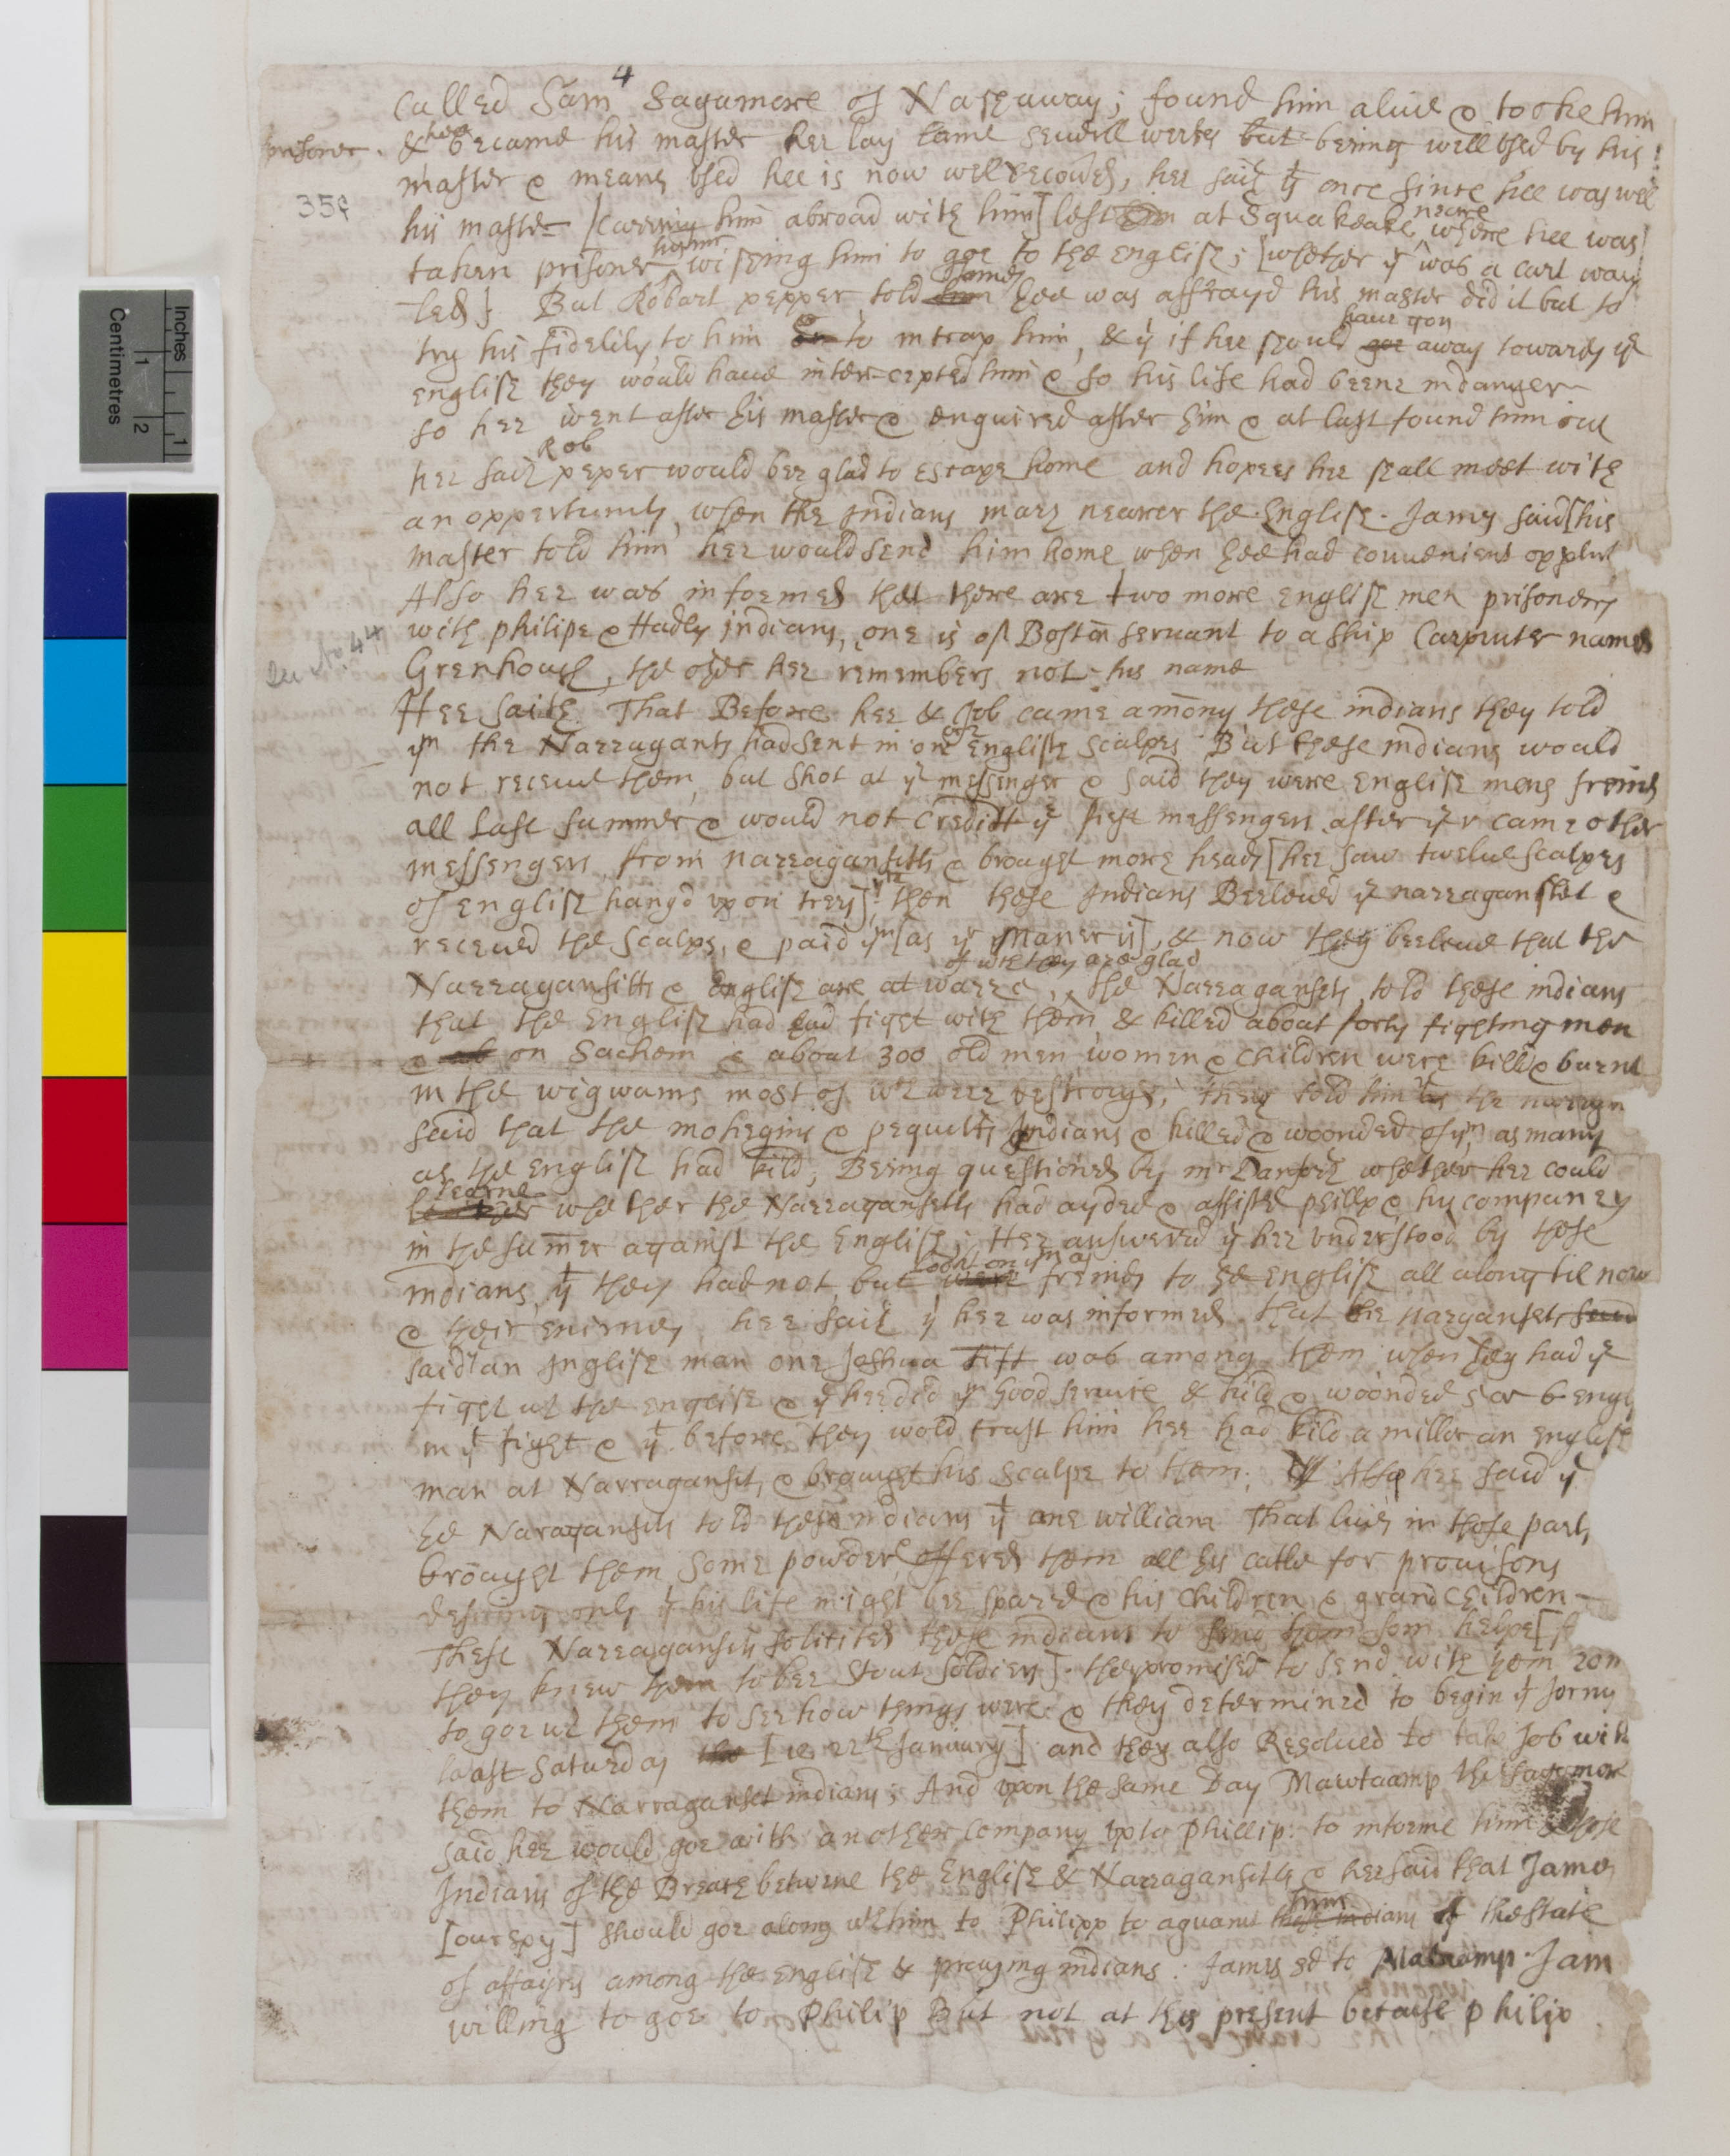 4
Called Sam Sagamore of Nashaway; found him aliue & tooke him
prisoner. & hee became his master hee lay lame seuerll weeks but being well vsed by his
master & means vsed hee is now wel recouered, hee saith yt once since hee was well
356
his master [carrying him abroad with him] left him at Squakeake neare where hee was
taken prisoner his master wishing him to goe to the english; [whether yr was a cart way
led] But Robart pepper told him James hee was affrayd his master did it but to
try his fidelity to him or to intrap him, & yt if hee should goe haue gon away towards ye
english they would haue intercepted him & so his life had beene indanger
so hee went after his master & enquired after him & at last found him out
hee saith Rob peper would bee glad to escape home and hopes hee shall meet with
an oppertunity, when the Indians mary nearer the English. James said [his
master told him hee would send him home when hee had conuenient opptut
Also hee was informed that there are two more english men prisoners
with philipe & Hadly indians, one is of Boston seruant to a ship Carpinter named
Grenhough, the other hee remembers not his name
Hee saith That Before hee & Job came among these indians they told
ym the Narragants had sent in one english scalpes But these indians would
not receiue them, but shot at ye messenger & said they were english mens freinds
all last summer & would not Creditt ye first messengers after yr came other
messengers from narragansitts & brought more heads [hee saw twelue scalpes
of english hangd vpon trees] then these Indians Beeleued ye narragansitt &
receued the scalps, & paid ym [as yr maner is], & now they beeleue that the
of wch they are glad
Narragansitts & english are at warre, the Narragansets told these indians
that the english had had fight with them & killed about forty fighting men
& ab on Sachem & about 300 old men women & children were killd & burnt
in the wigwams most of wch were destroyed, they told him yt the narragn
said that the mohegins & pequitts Indians & killed & woonded of ym as many
as the english had kild; Being questioned by mr Danforth whether hee could
learne whether the Narragansetts had ayded & assisted phillip & his companey
in the summer against the English; Hee answered yt hee vnderstood by these
indians yt they had not, but were lookt on ym as freinds to the english all along til now
& their enimys, hee saith yt hee was informed that the nargansets said
said an Inglish man one Joshua Tift was among them when they had ye
fight wt the english & yt hee did ym good seruice & kild & woonded 5 or 6 engl
in yt fight & yt before they wold trust him hee had kild a miller an english
man at Narragansit, & brought his scalpe to them; Also hee said yt
the Naragansits told these indians yt one william That liued in those parts
brought them some powder & offered them all his catle for prouisons
desiring only yt his life might bee spared & his children & grandchildren
These Narragansits solicited these indians to send them som helpe [
they knew them to bee stout soldiers]. they promised to send with them 20
to goe wt them to see how things were & they determined to begin yr Jorny
laast Saturday [ie 22th January] and they also Resolued to take Job with
them to Narragansit indians; And vpon the same Day Mawtaamp the sagamore
said hee would goe with another company vp to Phillip to informe him & those
Indians of the Breach betweene the English & Narragansitts & hee said that James
[our spy] should goe along wt him to Philipp to aquant those indians him of the state
of affayrs among the english & praying indians. James sd to Mataamp I am
willing to goe to Philip But not at this present because Philip